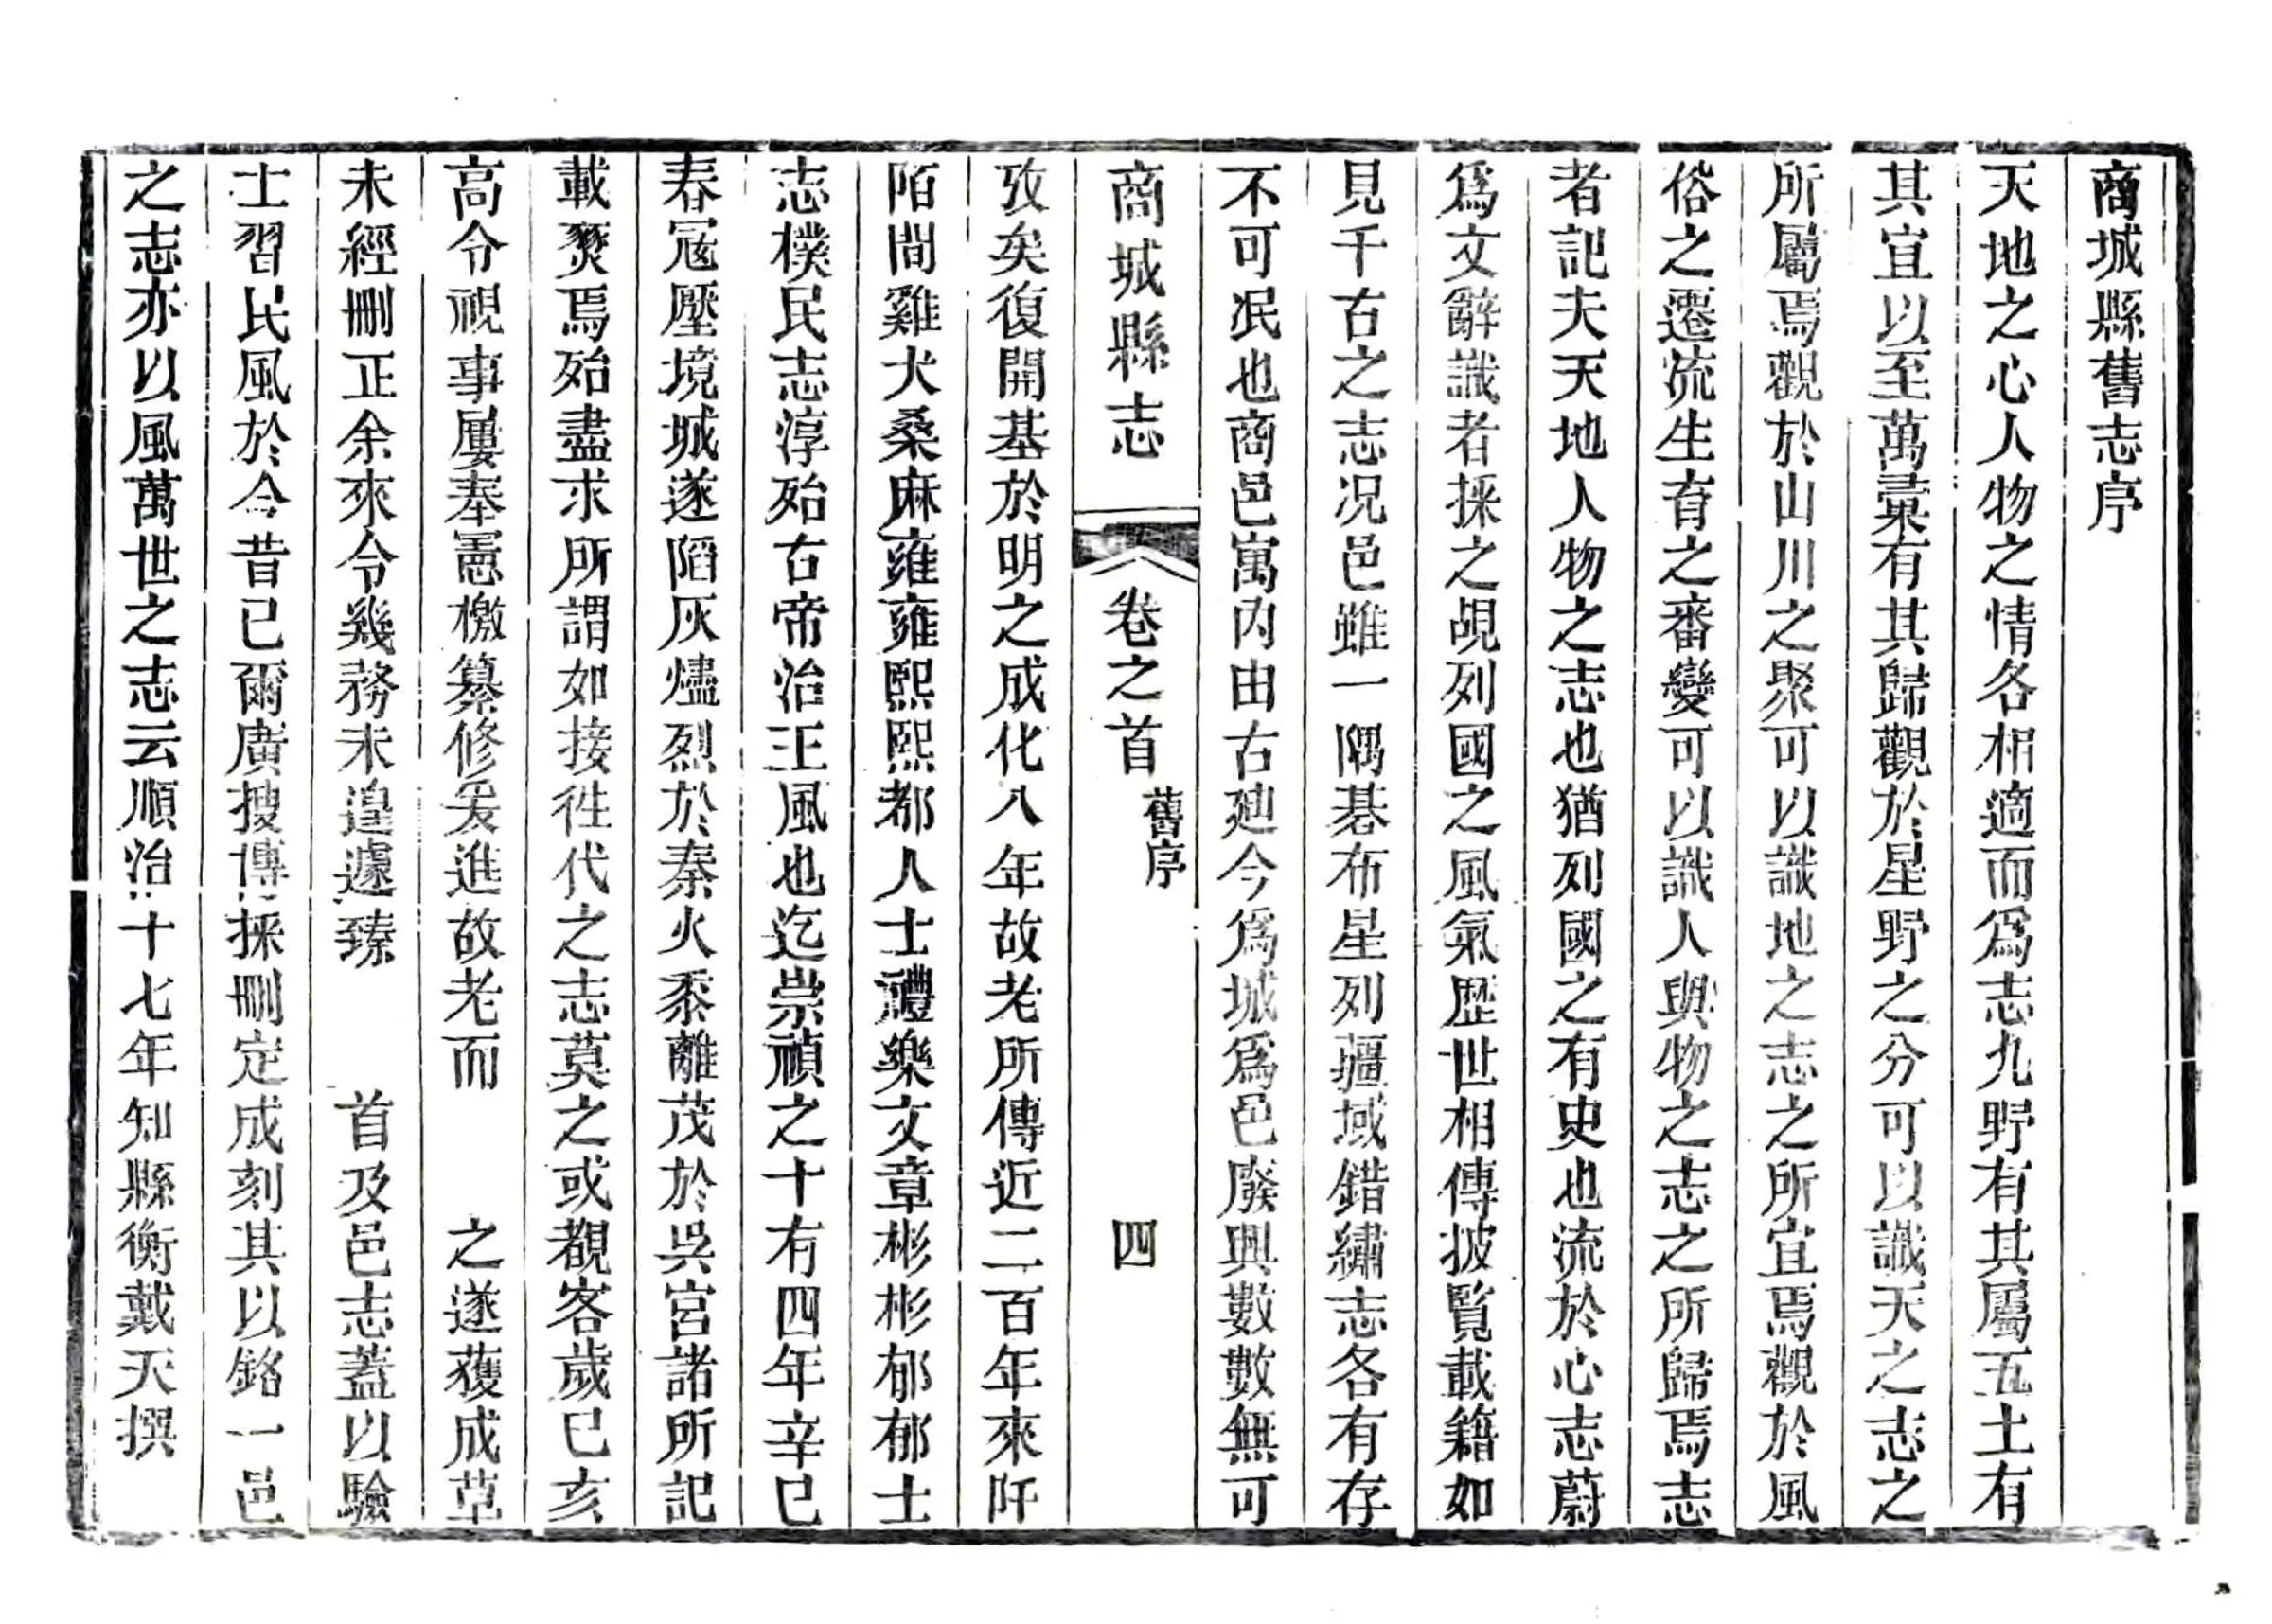 商城縣舊志序
天地之心人物之情各相適而爲志九野有其屬五土有
其宜以至萬彙有其歸觀於星野之分可以識天之志之
所屬焉觀於山川之聚可以識地之志之所宜焉觀於風
俗之遷流生育之畨變可以識人與物之志之所歸焉志
者記夫天地人物之志也猶列國之有史也流於心志蔚
爲文辭識者採之覘列國之風氣歷世相傳披覽載籍如
見千古之志况邑雖一隅碁布星列疆域錯繡志各有存
不可泯也商邑寓内由古廸今爲城爲邑廢興數數無可
商城縣志 卷之首 舊序 四
攷矣復開基於明之成化八年故老所傳近二百年來阡
陌間雞犬桑麻雍雍熙熙都人士禮樂文章彬彬郁郁士
志樸民志淳殆古帝治王風也迄崇禎之十有四年辛巳
春冦壓境城遂陷灰燼烈於秦火黍離茂於吳宮諸所記
載燹焉殆盡求所謂如接徃代之志莫之或覩客歲巳亥
高令視事屢奉憲檄纂修爰進故老而 之遂獲成草
未經刪正余來令幾務未遑遽臻 首及邑志蓋以驗
士習民風於今昔已爾廣搜博採刪定成刻其以銘一邑
之志亦以風萬世之志云順治十七年知縣衛戴天撰